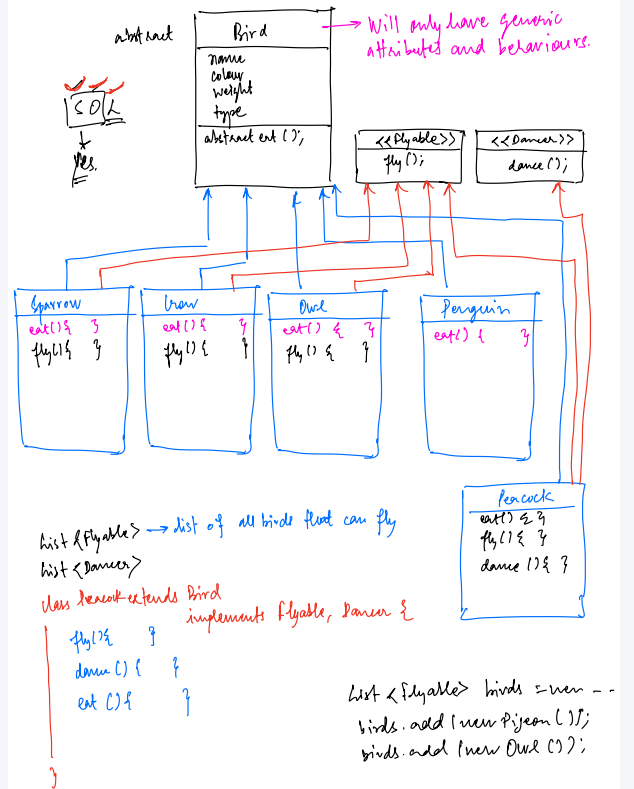 abstract
Bird
→ Will only have generic
attributes and behaviours.
name
colour
weight
type
abstract eat();
SOL
Yes.
<<Flyable>>
fly();
<<Dancer>>
dance();
Sparrow
eat(){ }
fly(){ }
Crow
eat(){ }
fly(){ }
Owl
eat() { }
fly() { }
Penguin
eat() { }
Peacock
eat() { }
fly() { }
dance () { }
List <Flyable> → list of all birds that can fly
List <Dancer>
class Peacock extends Bird
implements Flyable, Dancer {
fly(){ }
dance() { }
eat (){ }
}
List <Flyable> birds = new - -
birds.add (new Pigeon());
birds.add (new Owl ());